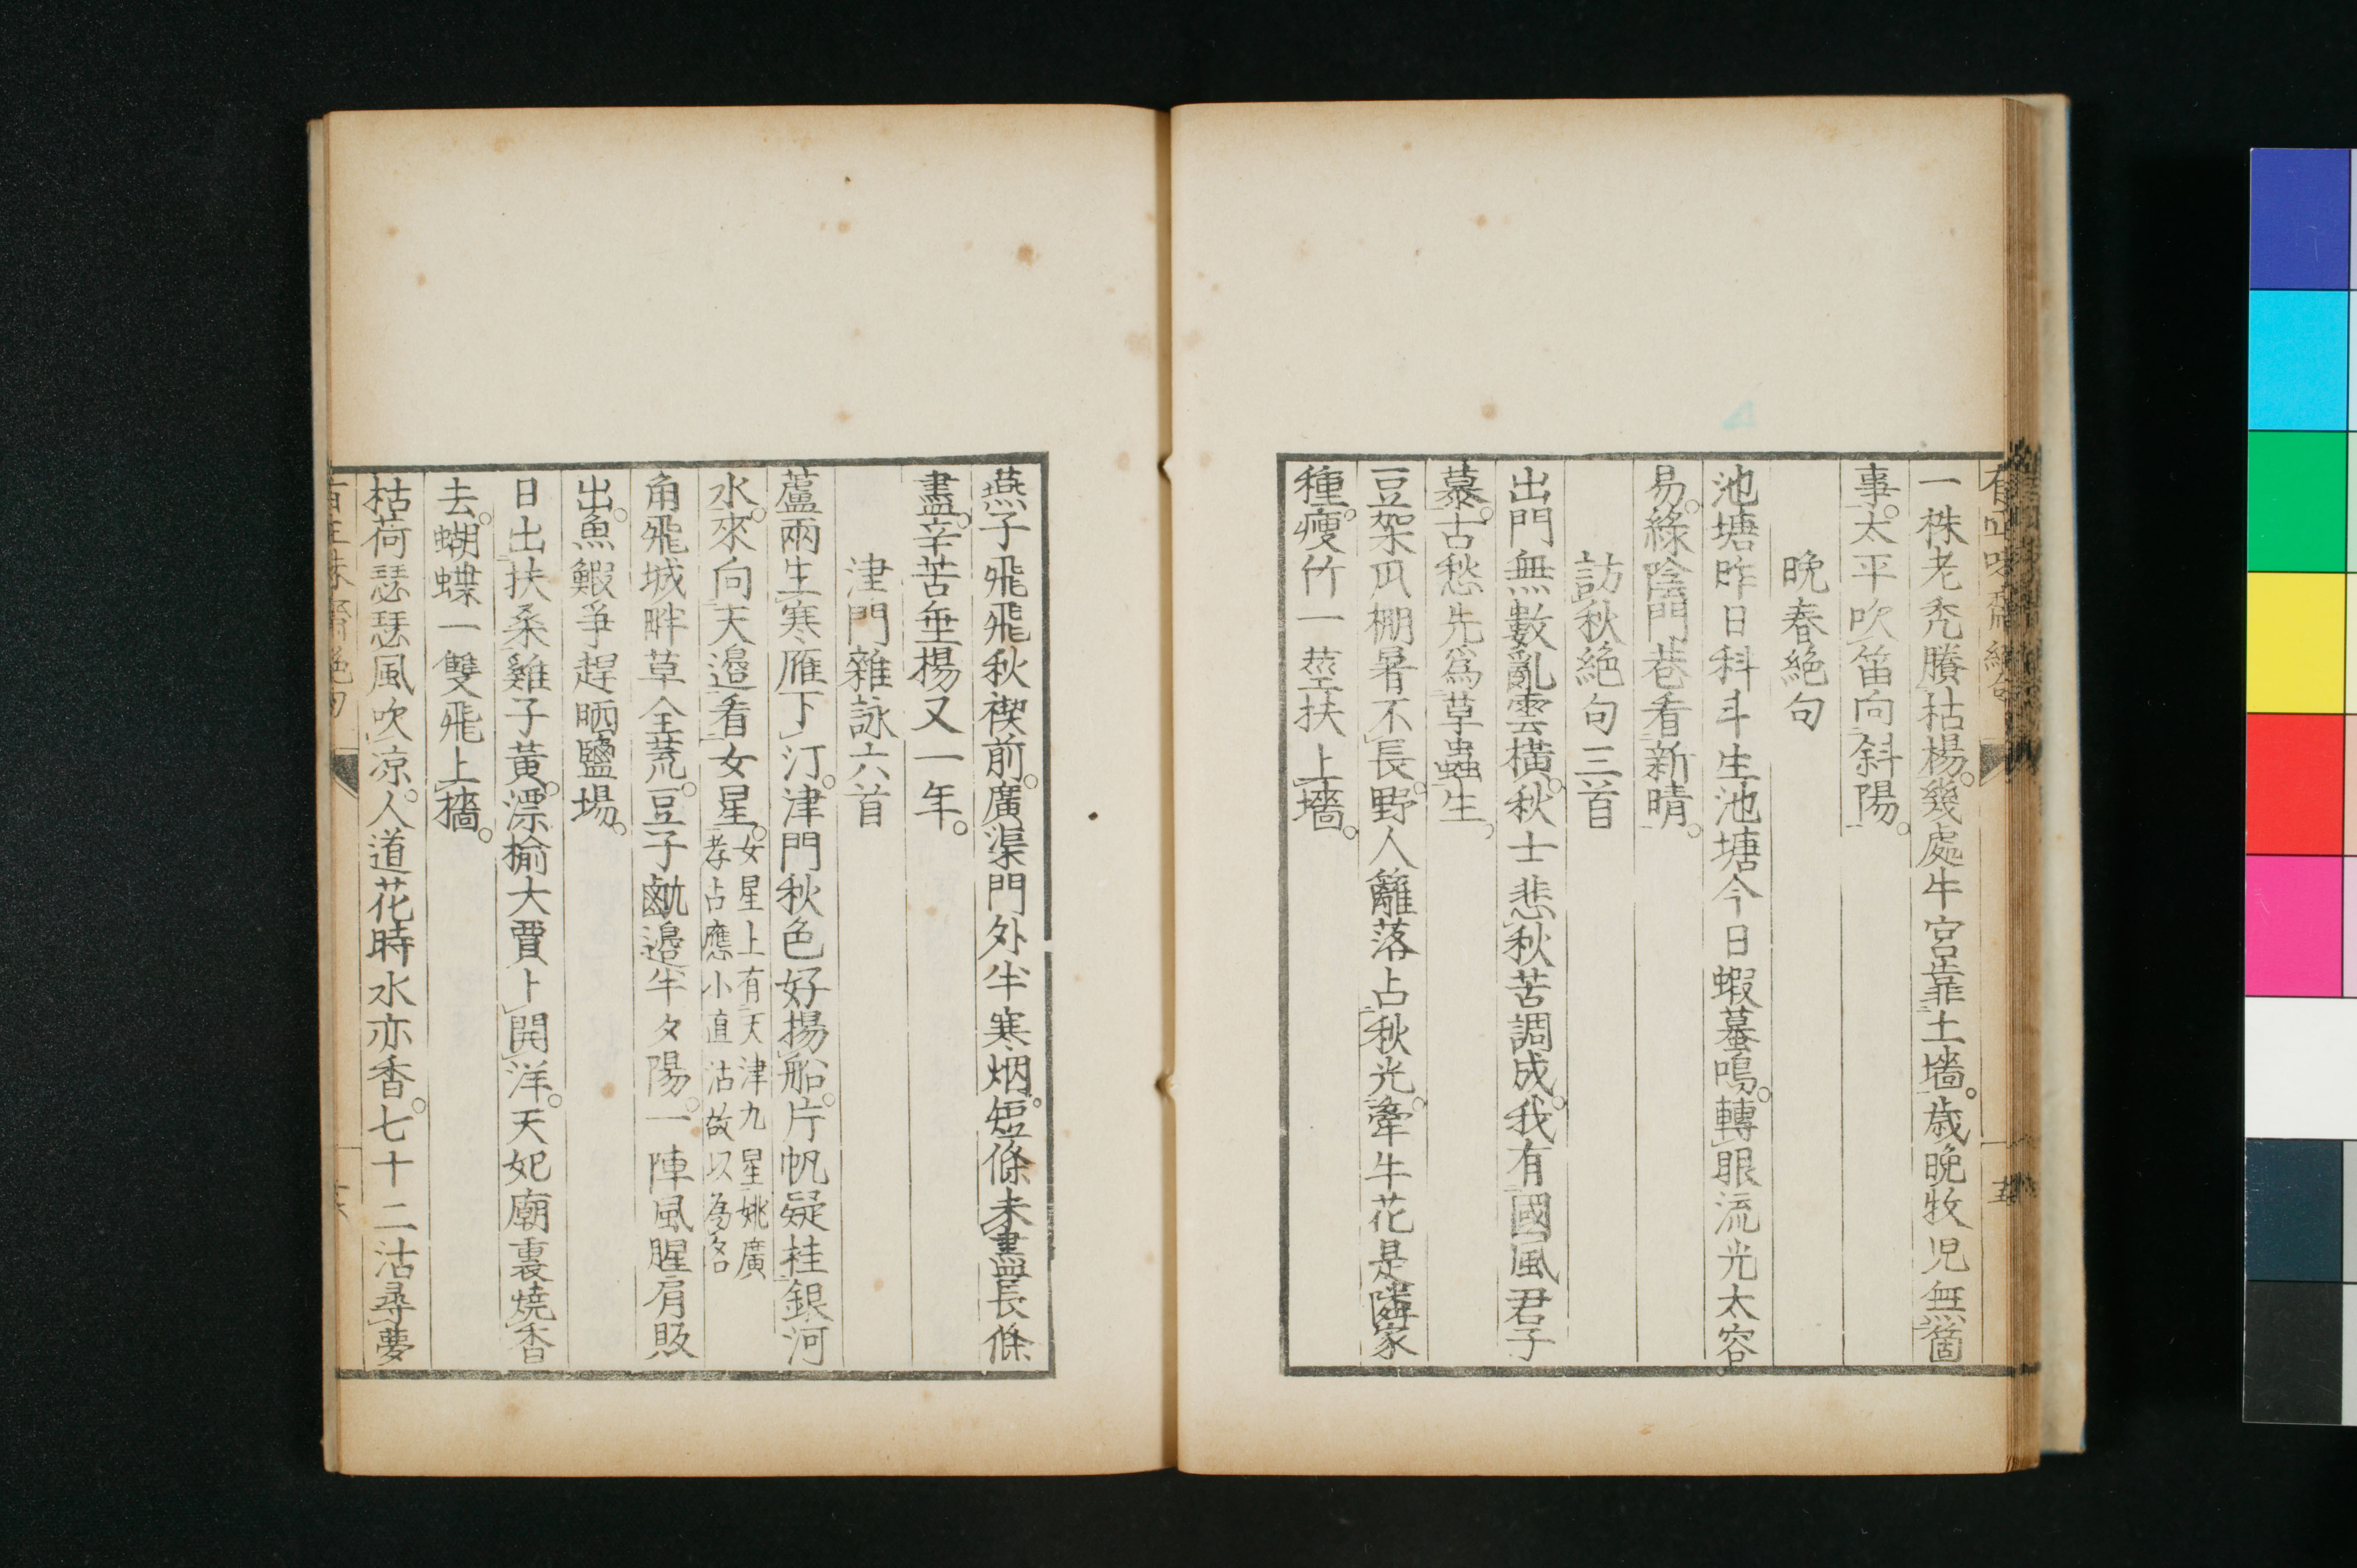 一株老禿賸枯楊。幾處牛宮靠土墻。歲晚牧児無箇
事。太平吹笛向斜陽。
晚春絕句
池塘昨日科斗生池塘今日蝦蟇鳴。轉眼流光太容
易。綠陰門巷看新晴。
訪秋絕句三首
出門無數亂雲橫。秋士悲秋苦調成。我有國風君子
慕。古愁先爲草蟲生。
豆架瓜棚暑不長。野人籬落占秋光。牽牛花是隣家
種。瘦竹一莖扶上墻。
燕子飛飛秋禊前。廣渠門外半寒烟。短條未盡長條
盡。辛苦垂楊又一年。
津門雜詠六首
蘆兩生寒雁下汀。津門秋色好揚船。片帆疑挂銀河
水。來向天邉看女星。女星上有天津九星姚廣
孝占應小直沽故以為名
角飛城畔草全荒。豆子䴚邉半夕陽。一陣風腥肩販
出。魚鰕爭趕晒鹽場。
日出扶桑雞子黃。漂榆大賈卜開洋。天妃廟裏燒香
去。蝴蝶一雙飛上檣。
枯荷瑟瑟風吹凉。人道花時水亦香。七十二沽尋夢